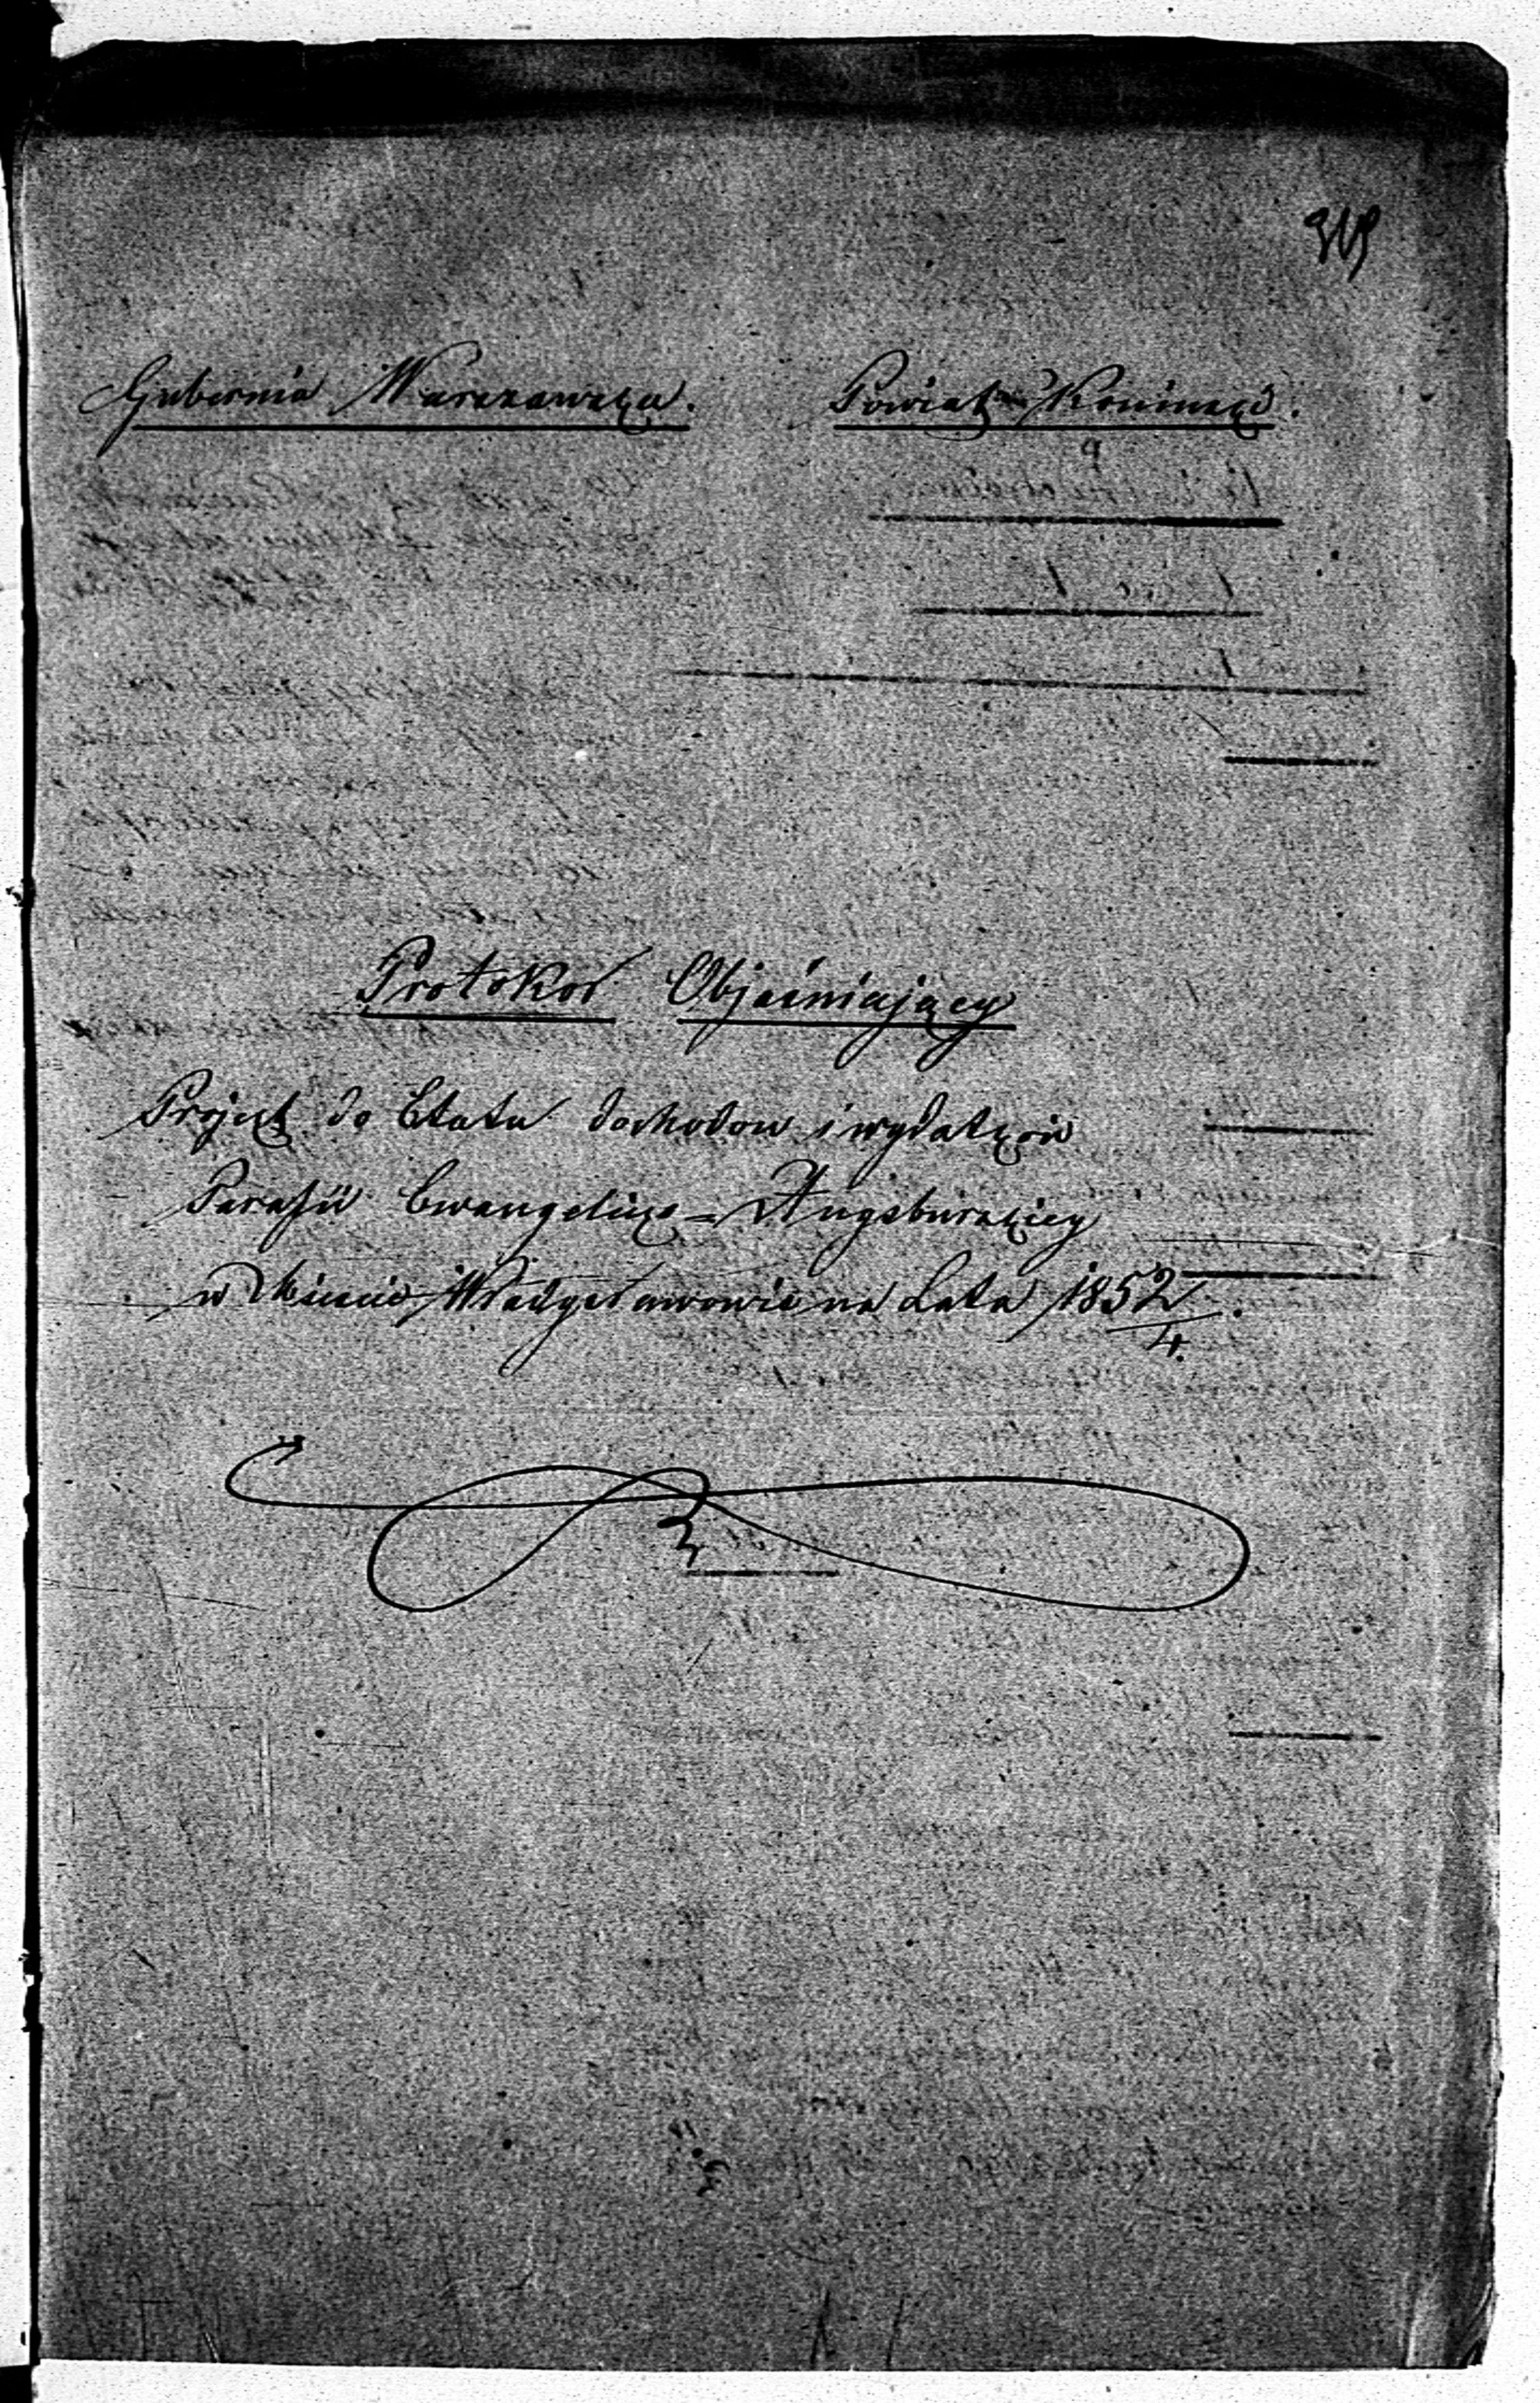 Gubernia Warszawska. Powiat Koninski.
Protokoł Objaśniający
Projekt do Etatu dochodow i wydatkow
Parafii Ewangelicko-Augsburskiey
w Mieście Władysławowie na Lata 1852/4.